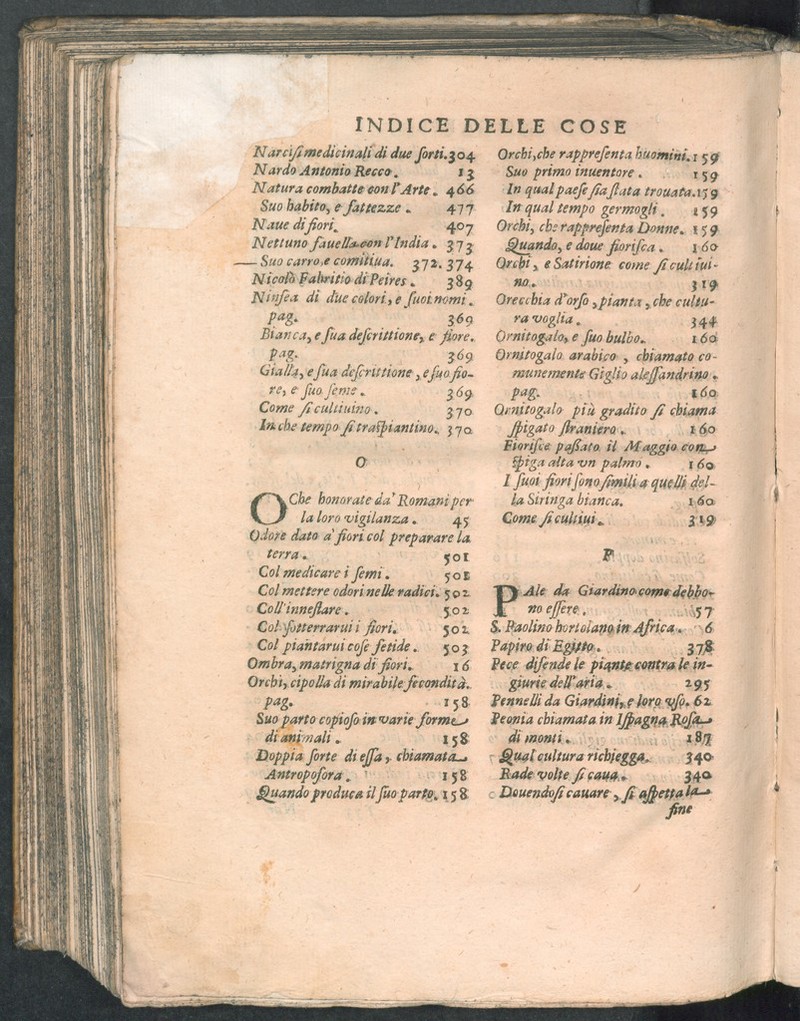 INDICE DELLE COSE
Narcisi medicinali di due ſorti. 304
Nardo Antonio Recco. 13
Natura combatte con l'Arte. 466
Suo habito, e fattezze. 477
Naue di fiori. 407
Nettuno fauella con l'India. 373
Suo carro, e comitiua. 372. 374
Nicolò Fabritio di Peires. 389
Ninfea di due colori, e ſuoi nomi.
pag. 369
Bianca, e ſua deſcrittione, e fiore.
pag. 369
Gialla, e ſua deſcrittione, e ſuo fio-
re, e ſuo ſeme. 369
Come ſi cultiuino. 370
In che tempo ſi traſpiantino. 370
O
OChe honorate da' Romani per
la loro vigilanza. 45
Odore dato a' fiori col preparare la
terra. 501
Col medicare i ſemi. 501
Col mettere odori nelle radici. 502
Coll'inneſtare. 502
Col ſotterrarui i fiori. 502
Col piantarui coſe fetide. 503
Ombra, matrigna di fiori. 16
Orchi, cipolla di mirabile fecondità.
pag. 158
Suo parto copioſo in varie forme
di animali. 158
Doppia ſorte di eſſa, chiamata
Antropofora. 158
Quando produca il ſuo parto. 158
Orchi, che rappreſenta huomini. 159
Suo primo inuentore. 159
In qual paeſe ſia ſtata trouata. 159
In qual tempo germogli. 159
Orchi, che rappreſenta Donne. 159
Quando, e doue fioriſca. 160
Orchi, e Satirione come ſi cultiui-
no. 319
Orecchia d'orſo, pianta, che cultu-
ra voglia. 344
Ornitogalo, e ſuo bulbo. 160
Ornitogalo arabico, chiamato co-
munemente Giglio aleſſandrino.
pag. 160
Ornitogalo più gradito ſi chiama
ſpigato ſtraniero. 160
Fioriſce paſsato il Maggio con
ſpiga alta vn palmo. 160
I ſuoi fiori ſono ſimili a quelli del-
la Siringa bianca. 160
Come ſi cultiui. 319
P
PAle da Giardino come debbo-
no eſſere. 57
S. Paolino hortolano in Africa. 6
Papiro di Egitto. 378
Pece difende le piante contra le in-
giurie dell'aria. 295
Pennelli da Giardini, e loro vſo. 62
Peonia chiamata in Iſpagna Roſa
di monti. 187
Qual cultura richiegga. 340
Rade volte ſi caua. 340
Douendoſi cauare, ſi aſpetta la
fine